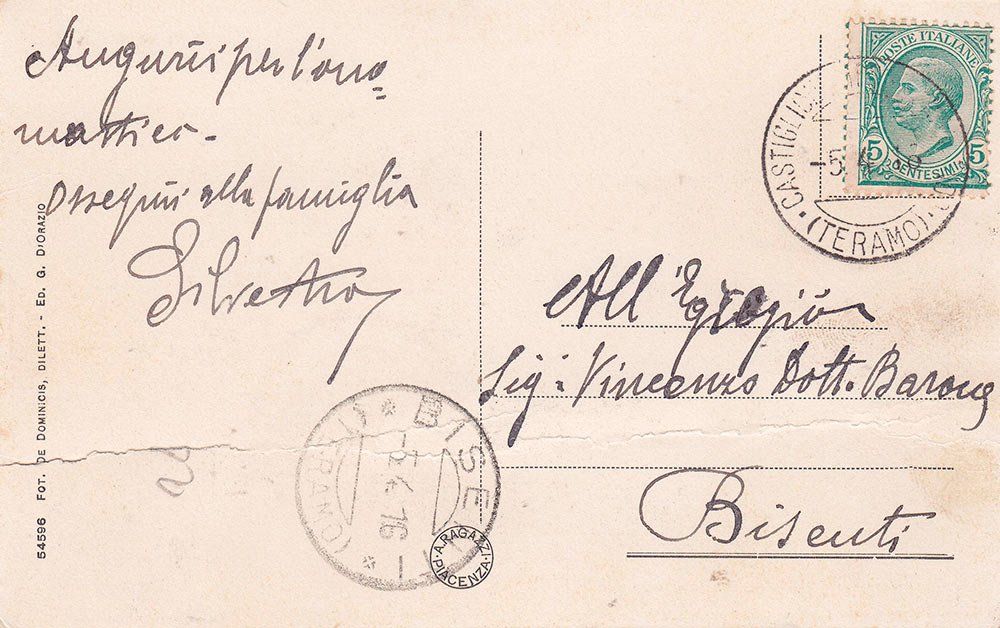 Augurii per l'ono-
mastico -
ossequii alla famiglia
Silvestro
POSTE ITALIANE
5 CENTESIMI 5
-5.4
(TERAMO)
All'Egregio
Sig: Vincenzo Dott. Barone
Bisenti
BISENTI
-5.4.16
(TERAMO)
A. RAGAZZI
PIACENZA
54596 FOT. DE DOMINICIS, DILETT. - ED. G. D'ORAZIO